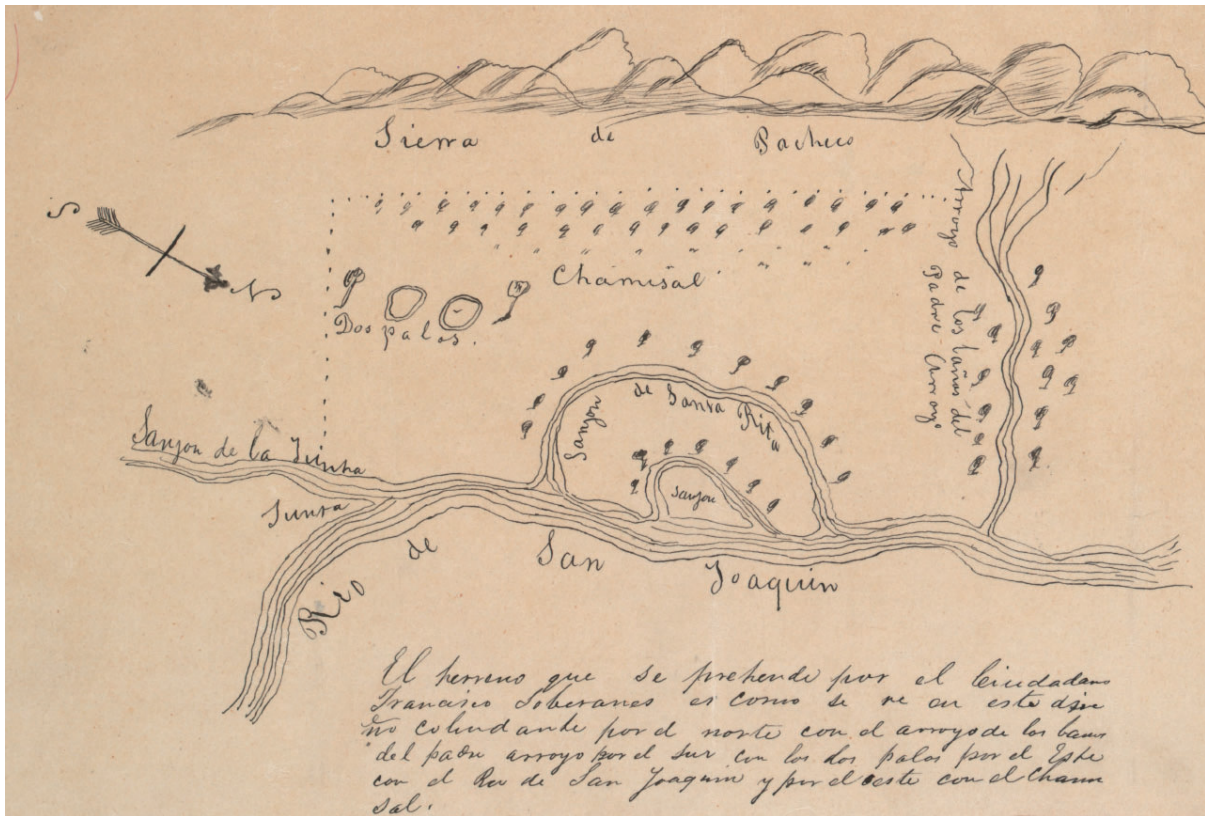 Sierra de Pacheco
S
N
Chamisal
Dos palos.
Arroyo de los baños del
Padre Arroyo
Sanjon de Santa Rita
Sanjon
Sanjon de la Junta
Junta
Rio de San Joaquin
El terreno que se pretende por el Ciudadano
Francisco Soberanes es como se ve en este dise
ño colindante por el norte con el arroyo de los baños
del padre arroyo por el sur con los dos palos por el Este
con el Rio de San Joaquin y por el oeste con el Chami
sal.